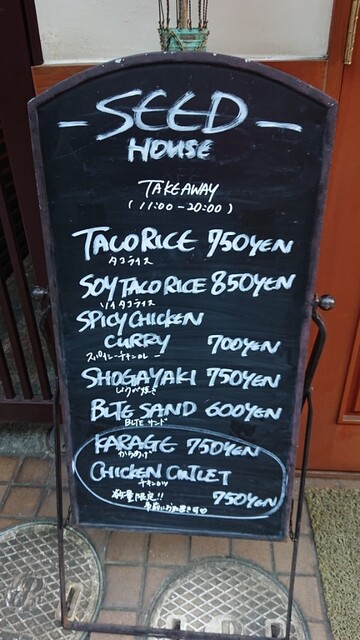 SEED
HOUSE
TAKEAWAY
(11:00-20:00)
TACO RICE 750YEN
タコライス
SOY TACO RICE 850YEN
ソイタコライス
SPICY CHICKEN
CURRY 700YEN
スパイシーチキンカレー
SHOGAYAKI 750YEN
しょうが焼き
BLTE SAND 600YEN
BLTE サンド
KARAGE 750YEN
からあげ
CHICKEN CUTLET
チキンカツ
数量限定!! 750YEN